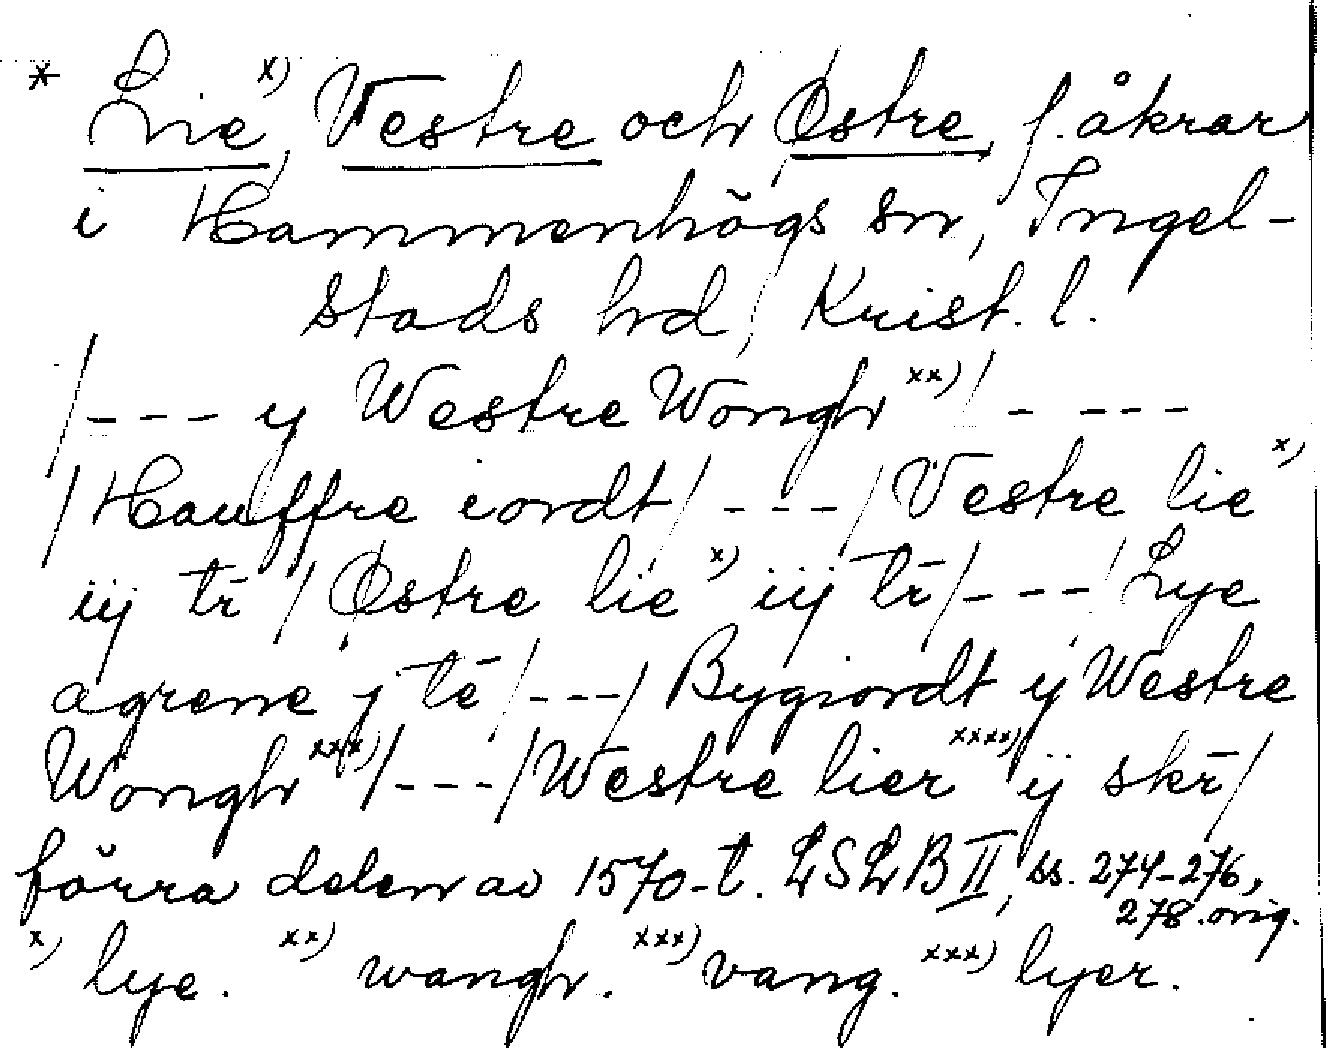 * Lie x), Vestre och Østre, f. åkrar
i Hammenhögs sn, Ingel-
stads hd, Krist. l.
/--- y Westre Wongh xx) / - ---
/ Hauffre iordt / --- / Vestre lie x)
iij tr̄ / Østre lie x) iij tr̄ / --- / Lye
agrene j tē / --- / Bygiordt ij Westre
Wongh xxx) / --- / Westre lier xxxx) ij skr̄ /
förra delen av 1570-t. LSLB II, ss. 274-276,
278. orig.
x) lye. xx) wangh. xxx) vang. xxx) lyer.